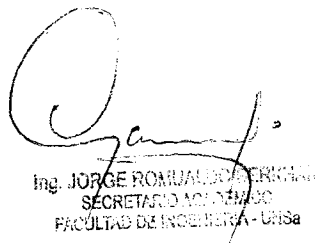 Ing. JORGE ROMUALDO
SECRETARIO ACADEMICO
FACULTAD DE INGENIERIA - UNSa